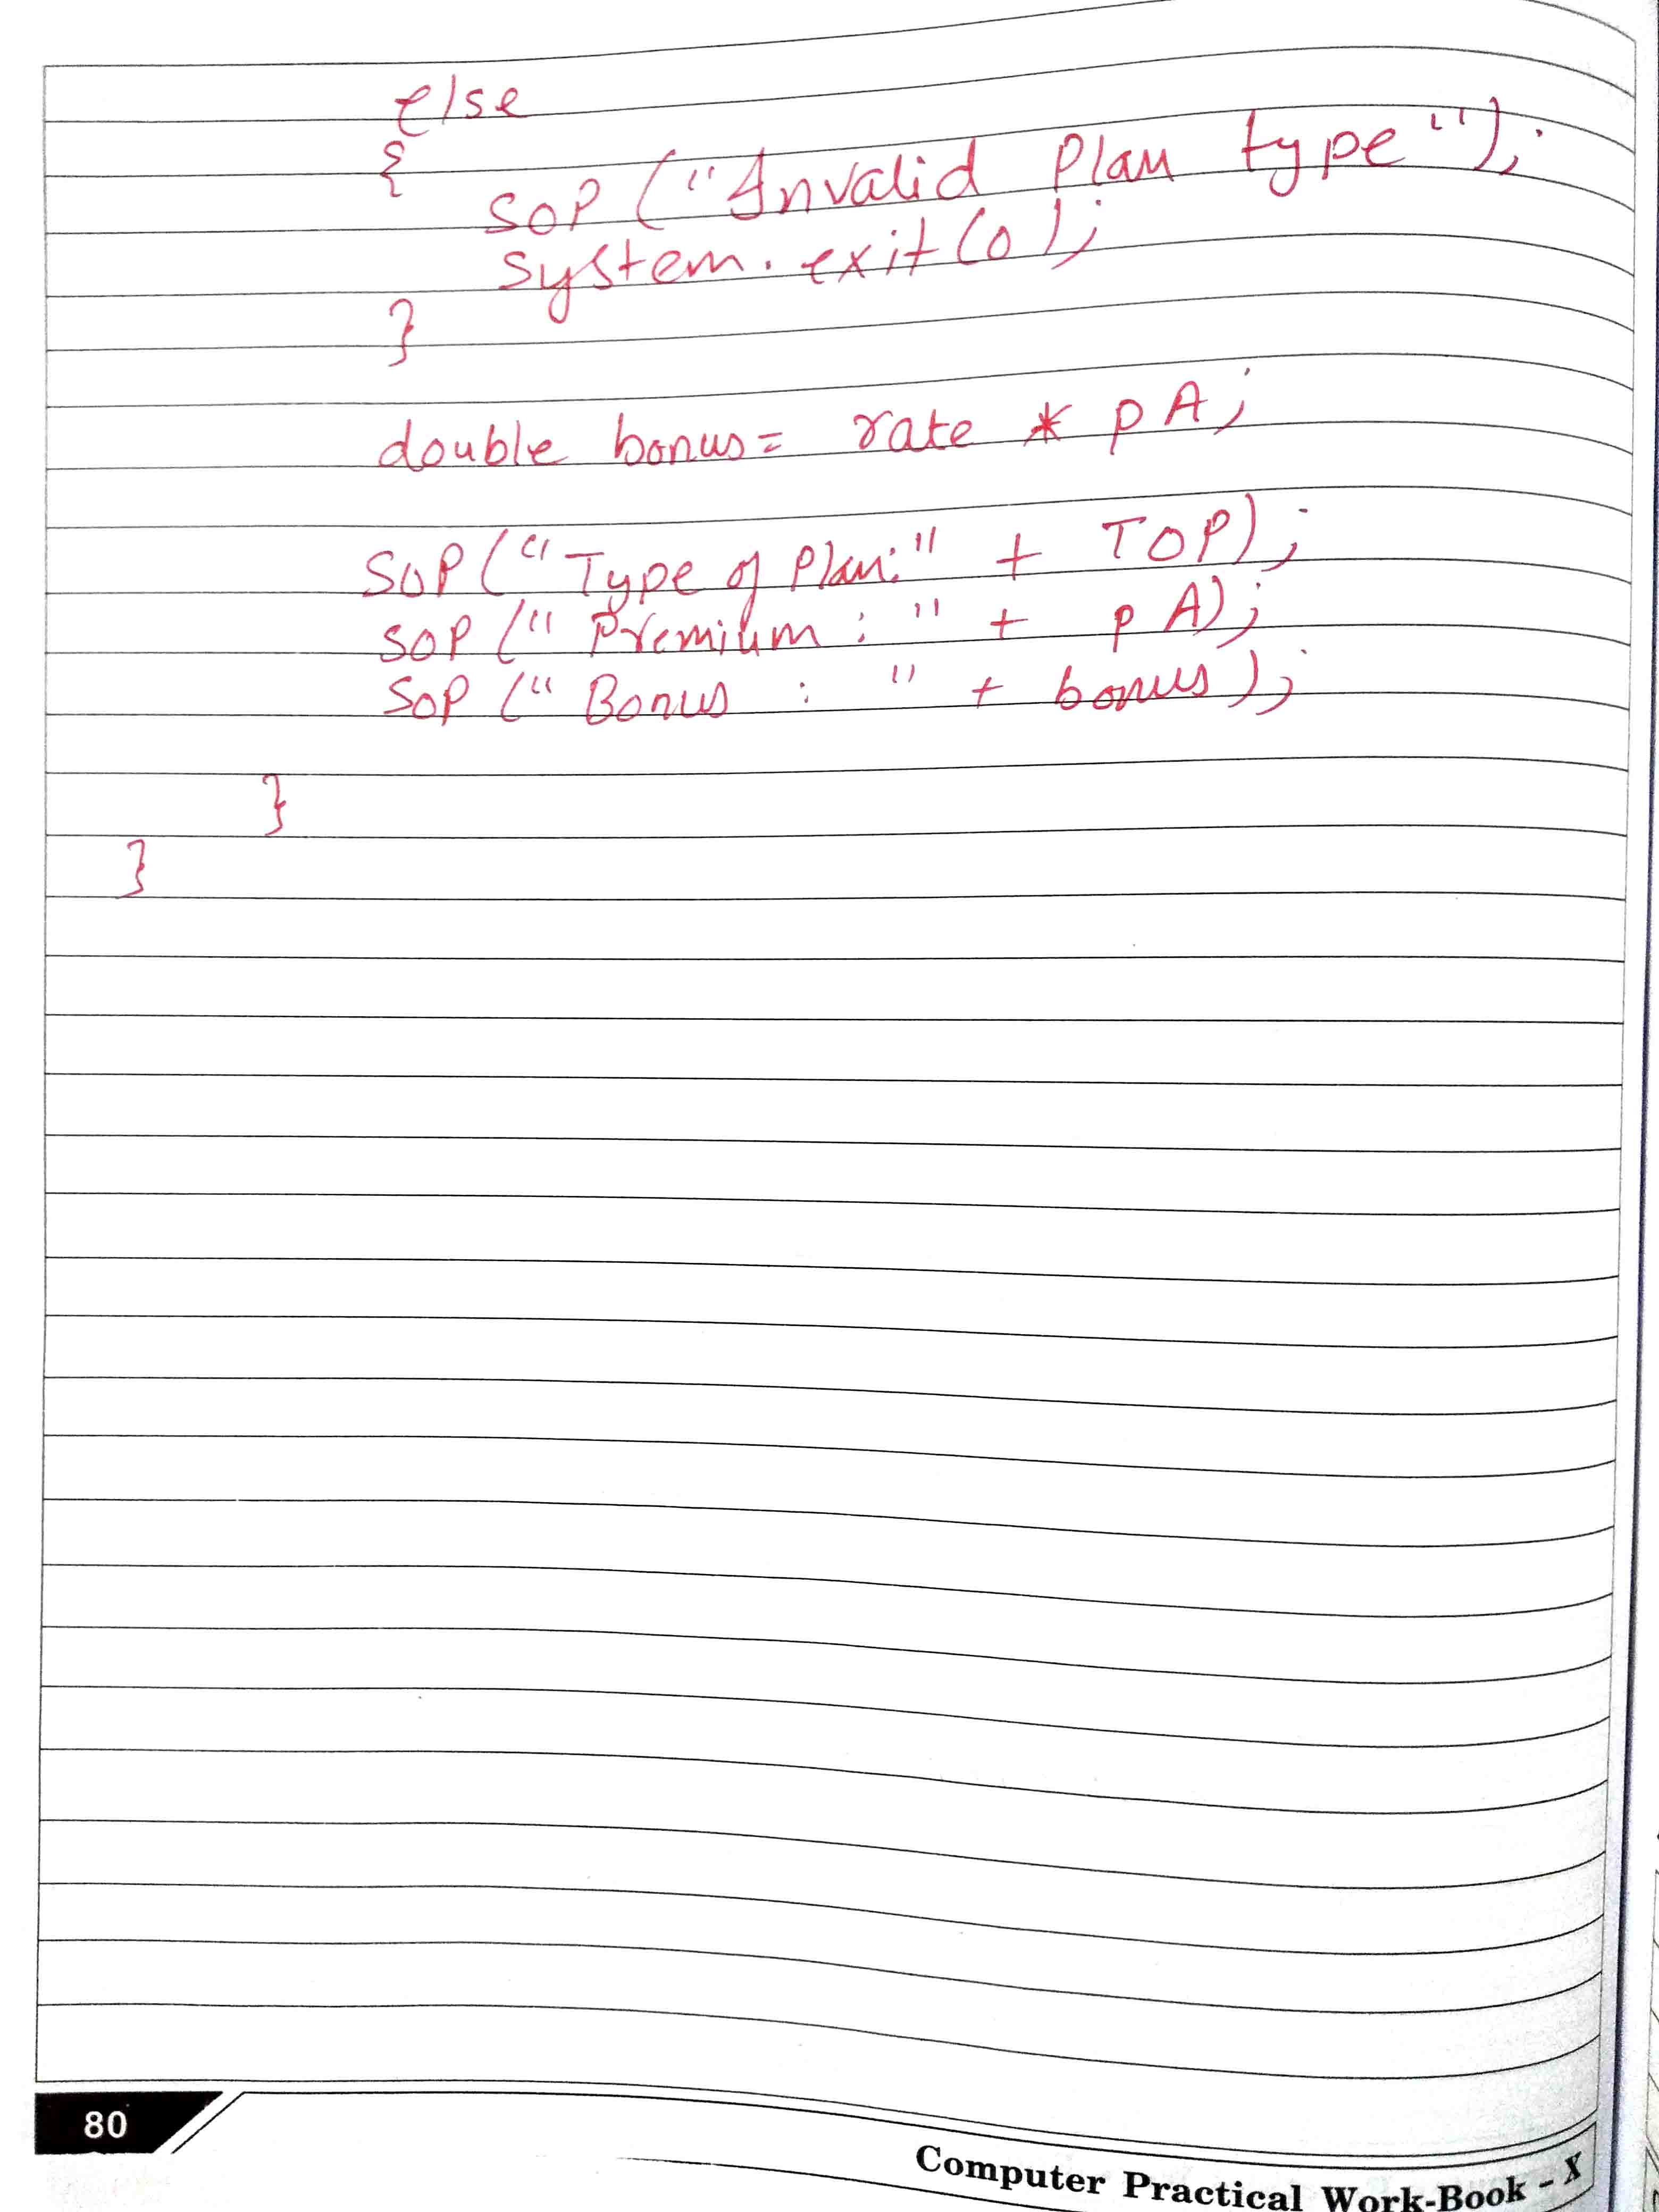 else
{
SOP ("Invalid Plan type");
system.exit(0);
}
double bonus= rate * pA;
SOP ("Type of Plan:" + TOP);
SOP (" Premium : " + pA);
SOP (" Bonus : " + bonus);
}
}
80
Computer Practical Work-Book - X